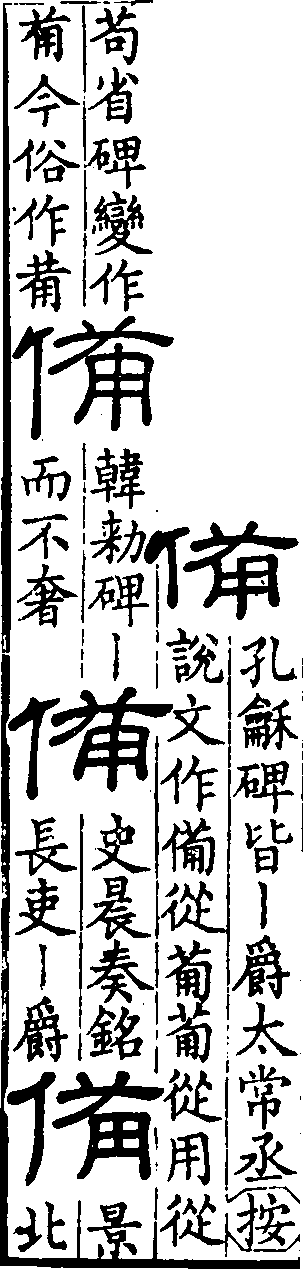 備
孔龢碑皆丨爵太常丞按
說文作備從葡葡從用從
苟省碑變作
𤰇今俗作
備
韓勑碑丨
而不奢
備
史晨奏銘
長吏丨爵
備
景
北